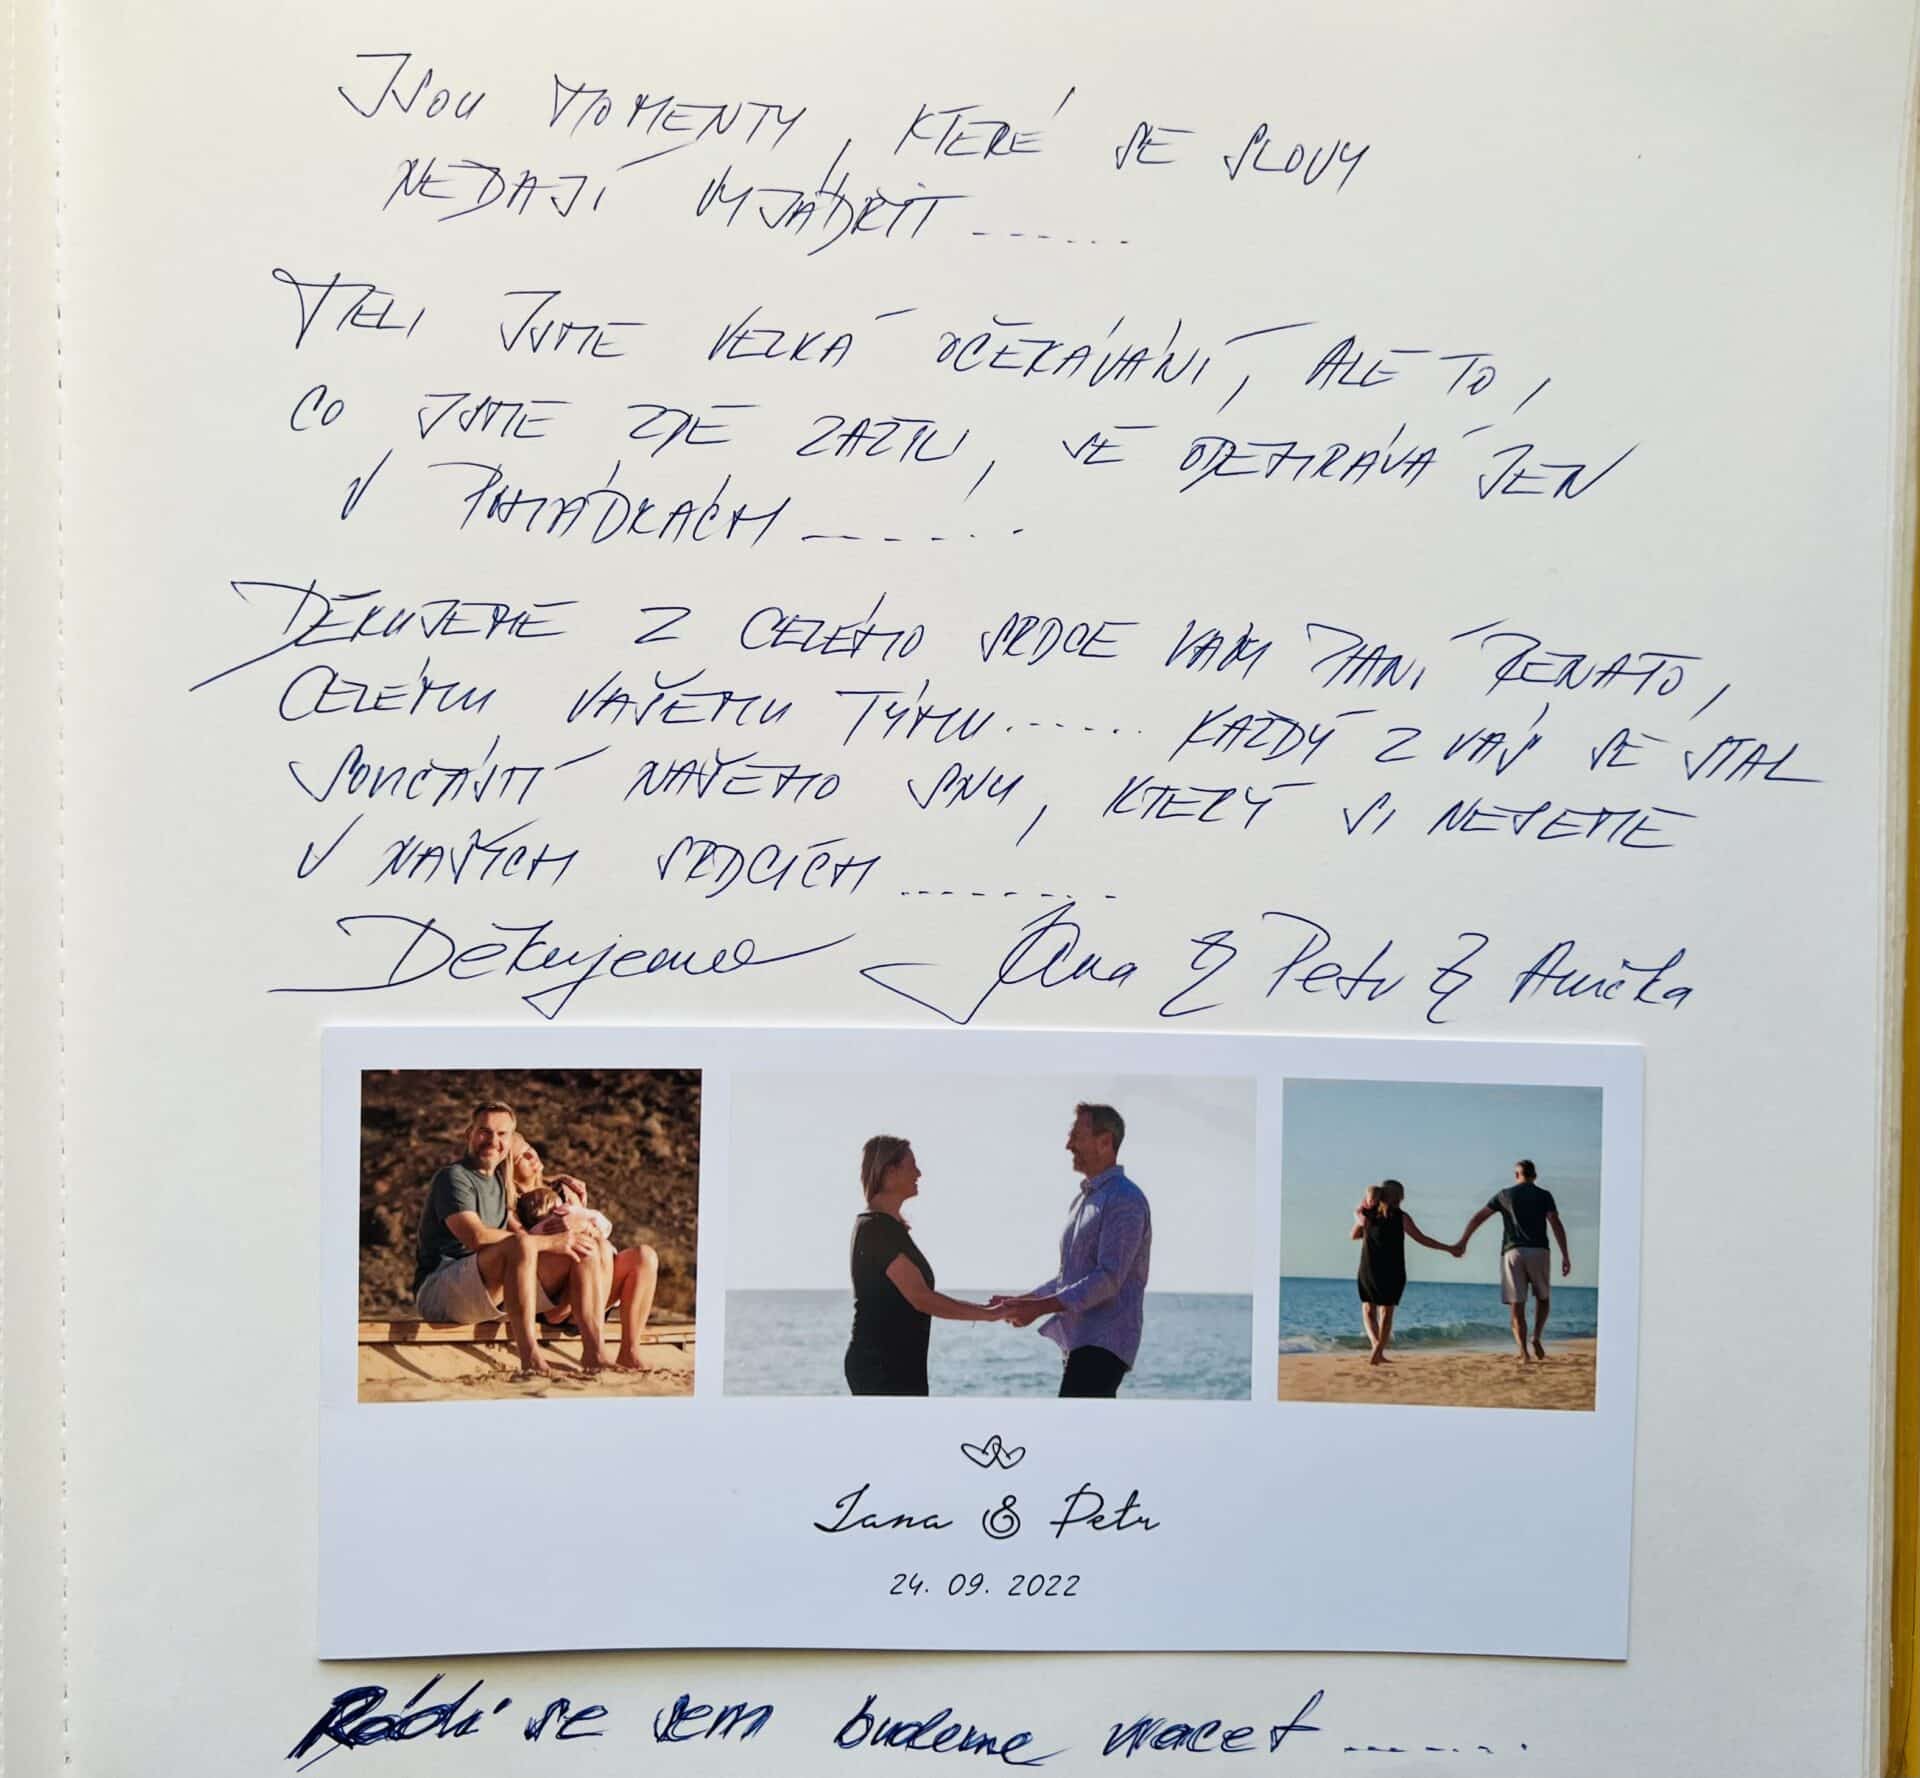 JSOU MOMENTY, KTERÉ SE SLOVY
NEDAJÍ VYJÁDŘIT ......
MĚLI JSME VELKÁ OČEKÁVÁNÍ, ALE TO,
CO JSME ZDE ZAŽILI, SE ODEHRÁVÁ JEN
V POHÁDKÁCH ......
DĚKUJEME Z CELÉHO SRDCE VÁM PANÍ RENATO,
CELÉMU VAŠEMU TÝMU...... KAŽDÝ Z VÁS SE STAL
SOUČÁSTÍ NAŠEHO SNU, KTERÝ SI NESEME
V NAŠICH SRDCÍCH ........
Děkujeme Jana & Petr & Anička
Jana & Petr
24. 09. 2022
Rádi se sem budeme vracet ......